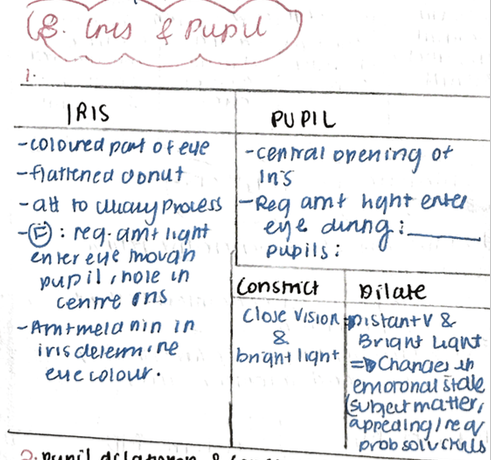 8. Iris & Pupil
1.
IRIS
-coloured part of eye
-flattened donut
-att to ciliary process
-(F): reg. amt light
enter eye through
pupil, hole in
centre iris
-Amt melanin in
iris determine
eye colour.
PUPIL
-central opening of
Iris
-Reg amt light enter
eye during:
pupils:
Constrict
Close vision
&
bright light
Dilate
Distant V &
Bright light
=> Changes in
emotional state
(subject matter,
appealing/req
prob solv skills
2. pupil dilatation &